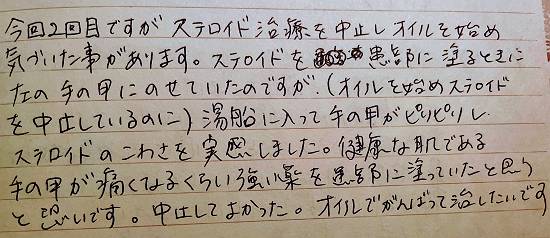 今回2回目ですがステロイド治療を中止しオイルを始め
気づいた事があります。ステロイドを患部に塗るときに
左の手の甲にのせていたのですが、(オイルを始めステロイド
を中止しているのに)湯船に入って手の甲がピリピリし
ステロイドのこわさを実感しました。健康な肌である
手の甲が痛くなるくらい強い薬を患部に塗っていたと思う
と恐いです。中止してよかった。オイルでがんばって治したいです